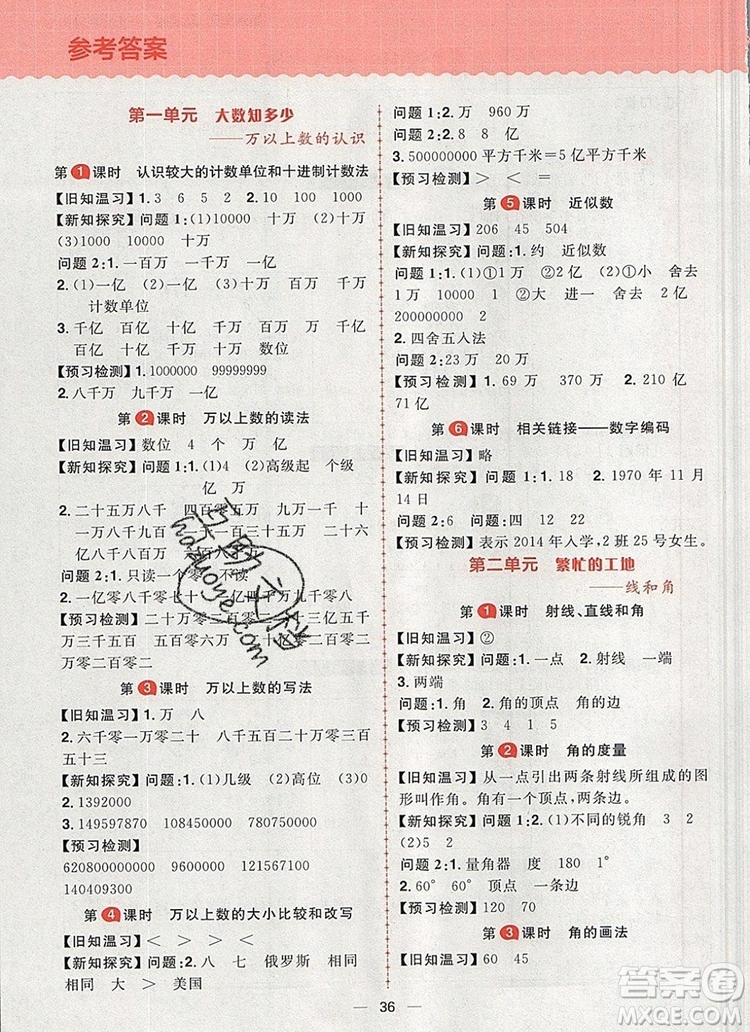 参考答案
第一单元 大数知多少
——万以上数的认识
第1课时 认识较大的计数单位和十进制计数法
【旧知温习】1.3 6 5 2 2.10 100 1000
【新知探究】问题1:(1)10000 十万 (2)十万
(3)1000 10000 十万
问题2:1.一百万 一千万 一亿
2.(1)一亿 (2)一亿 (3)十亿 百亿 千亿
计数单位
3.千亿 百亿 十亿 千万 百万 十万 千亿
百亿 十亿 千万 百万 十万 数位
【预习检测】1.1000000 99999999
2.八千万 九千万 一亿
第2课时 万以上数的读法
【旧知温习】数位 4 个 万 亿
【新知探究】问题1:1.(1)4 (2)高级起 个级
亿 万
2.二十五万八千 四百零五万 九万一千 二十
六万九千 一百三十万零五百
问题2:1.只读一个零 不读
2.一亿零八十万四千
【预习检测】二十万零
三万五千 五百零六万 二百二
万零二百零二
第3课时 万以上数的写法
【旧知温习】1.万 八
2.六千零一万零二十 八千零三万零三百
五十三
【新知探究】问题:1.(1)几级 (2)高位 (3)0
2.1392000
3.149597870 108450000 780750000
【预习检测】
620800000000 9600000 121567100
140409300
第4课时 万以上数的大小比较和改写
【旧知温习】< > > <
【新知探究】问题1:1.八 七 俄罗斯 相同
相同 大 > 美国
问题1:2.万 960万
问题2:1.> 2.8 8 亿
3.500000000平方千米=5亿平方千米
【预习检测】> < =
第5课时 近似数
【旧知温习】206 45 504
【新知探究】问题1:1.约 近似数
2.(1)①1万 ②2亿 (2)①千 小 舍去
舍去 10000 1万 ②千万 大 进一 舍去
200000000 2亿
3.四舍五入法
问题2:23万 20万
【预习检测】1.69万 370万 2.210亿
71亿
第6课时 相关链接——数字编码
【旧知温习】略
【新知探究】问题1:1.18 2.1970年11月
14日
问题2:6 问题:四 12 22
【预习检测】表示2014年入学,2班25号女生。
第二单元 繁忙的工地
——线和角
第1课时 射线、直线和角
【旧知温习】②
【新知探究】问题1:1.一点 射线 一端
3.两端
问题2:1.角 角的顶点 角的边
【预习检测】3 4 1 5
第2课时 角的度量
【旧知温习】从一点引出两条射线所组成的图
形叫作角。角有一个顶点,两条边。
【新知探究】问题1:2.(1)不同的锐角 3 2
(2)5 2
问题2:1.量角器 度 180 1°
2.60° 60° 顶点 一条边
【预习检测】120 70
第3课时 角的画法
【旧知温习】60 45
36
答案圈
MXQE.COM